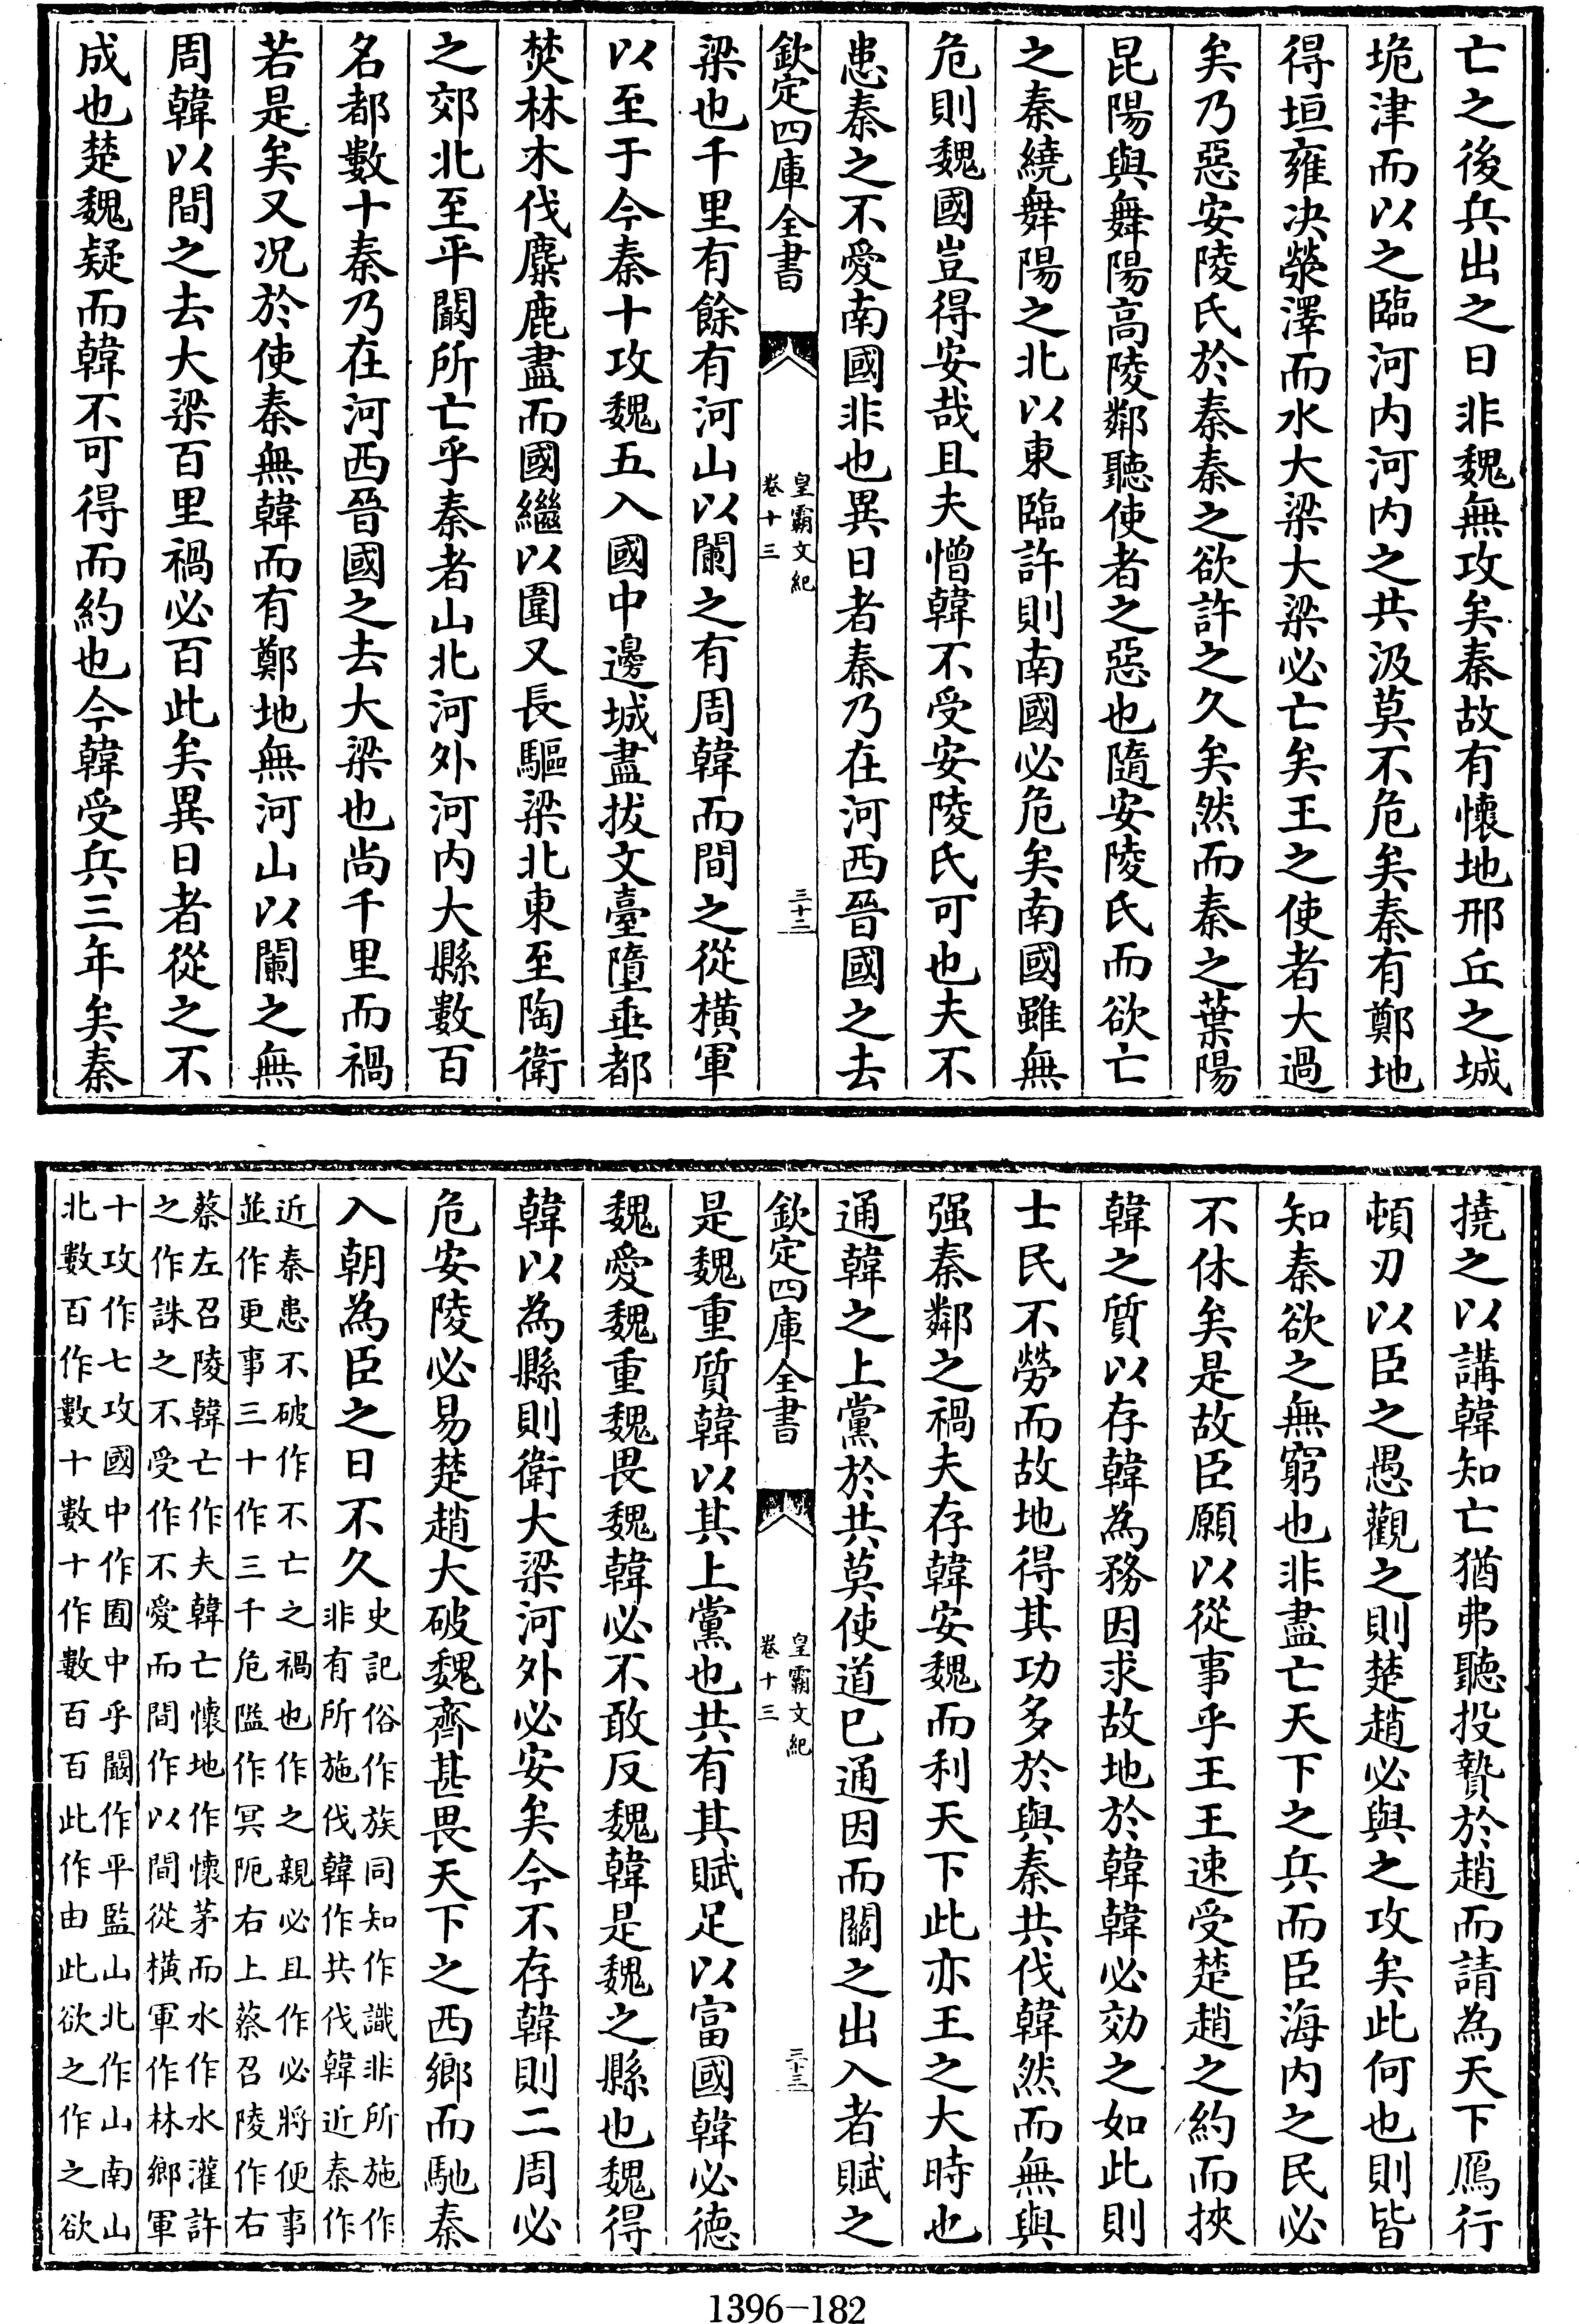 亡之後兵出之日非魏無攻矣秦故有懷地邢丘之城
垝津而以之臨河内河内之共汲莫不危矣秦有鄭地
得垣雍决滎澤而水大梁大梁必亡矣王之使者大過
矣乃惡安陵氏於秦秦之欲許之久矣然而秦之葉陽
昆陽與舞陽高陵鄰聽使者之惡也隨安陵氏而欲亡
之秦繞舞陽之北以東臨許則南國必危矣南國雖無
危則魏國豈得安哉且夫憎韓不受安陵氏可也夫不
患秦之不愛南國非也異日者秦乃在河西晉國之去
欽定四庫全書
皇霸文紀
卷十三
三十二
梁也千里有餘有河山以闌之有周韓而間之從橫軍
以至于今秦十攻魏五入國中邊城盡拔文臺墮垂都
焚林木伐麋鹿盡而國繼以圍又長驅梁北東至陶衛
之郊北至平闞所亡乎秦者山北河外河内大縣數百
名都數十秦乃在河西晉國之去大梁也尚千里而禍
若是矣又况於使秦無韓而有鄭地無河山以闌之無
周韓以間之去大梁百里禍必百此矣異日者從之不
成也楚魏疑而韓不可得而約也今韓受兵三年矣秦
撓之以講韓知亡猶弗聽投贄於趙而請為天下鴈行
頓刃以臣之愚觀之則楚趙必與之攻矣此何也則皆
知秦欲之無窮也非盡亡天下之兵而臣海内之民必
不休矣是故臣願以從事乎王王速受楚趙之約而挾
韓之質以存韓為務因求故地於韓韓必効之如此則
士民不勞而故地得其功多於與秦共伐韓然而無與
强秦鄰之禍夫存韓安魏而利天下此亦王之大時也
通韓之上黨於共莫使道已通因而關之出入者賦之
欽定四庫全書
皇霸文紀
卷十三
三十三
是魏重質韓以其上黨也共有其賦足以富國韓必德
魏愛魏重魏畏魏韓必不敢反魏韓是魏之縣也魏得
韓以為縣則衛大梁河外必安矣今不存韓則二周必
危安陵必易楚趙大破魏齊甚畏天下之西鄉而馳秦
入朝為臣之日不久
史記俗作族同知作識非所施作
非有所施伐韓作共伐韓近秦作
近秦患不破作不亡之禍也作之親必且作必將便事
並作更事三十作三千危隘作冥阨右上蔡召陵作右
蔡左召陵韓亡作夫韓亡懷地作懷茅而水作水灌許
之作誅之不受作不愛而間作以間從橫軍作林鄉軍
十攻作七攻國中作囿中乎闞作平監山北作山南山
北數百作數十數十作數百百此作由此欲之作之欲
1396-182